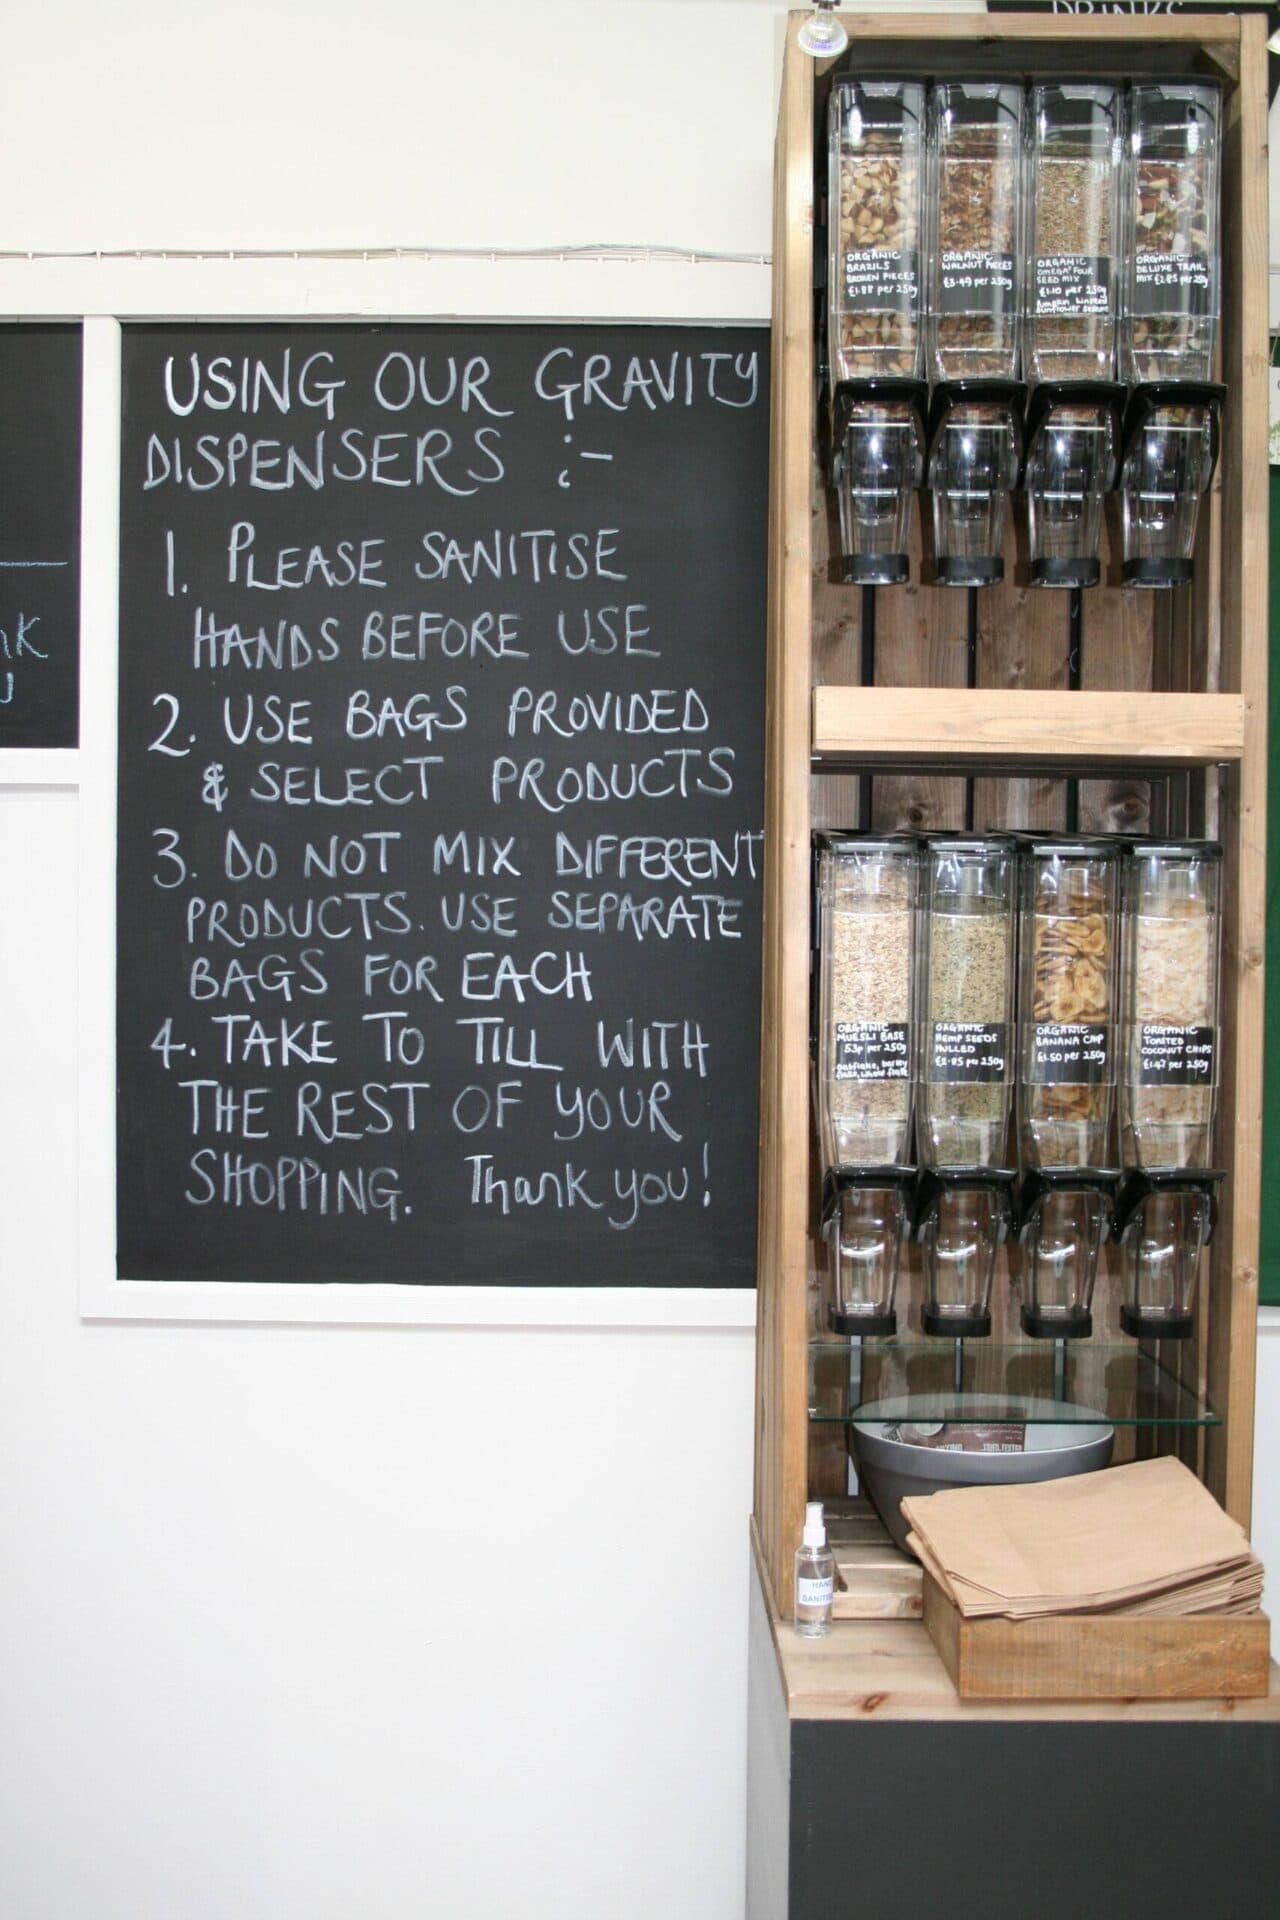 DRINKS
USING OUR GRAVITY
DISPENSERS :-
1. PLEASE SANITISE
HANDS BEFORE USE
2. USE BAGS PROVIDED
& SELECT PRODUCTS
3. DO NOT MIX DIFFERENT
PRODUCTS. USE SEPARATE
BAGS FOR EACH
4. TAKE TO TILL WITH
THE REST OF YOUR
SHOPPING. Thank you!
ORGANIC
BRAZILS
BROKEN PIECES
£1.88 per 250g
ORGANIC
WALNUT PIECES
£3.49 per 250g
ORGANIC
OMEGA FOUR
SEED MIX
£1.10 per 250g
Pumpkin Linseed
Sunflower Sesame
ORGANIC
DELUXE TRAIL
MIX £2.85 per 250g
ORGANIC
MUESLI BASE
53p per 250g
ORGANIC
HEMP SEEDS
HULLED
£2.85 per 250g
ORGANIC
BANANA CHIP
£1.50 per 250g
ORGANIC
TOASTED
COCONUT CHIPS
£1.47 per 250g
HAND
SANITI